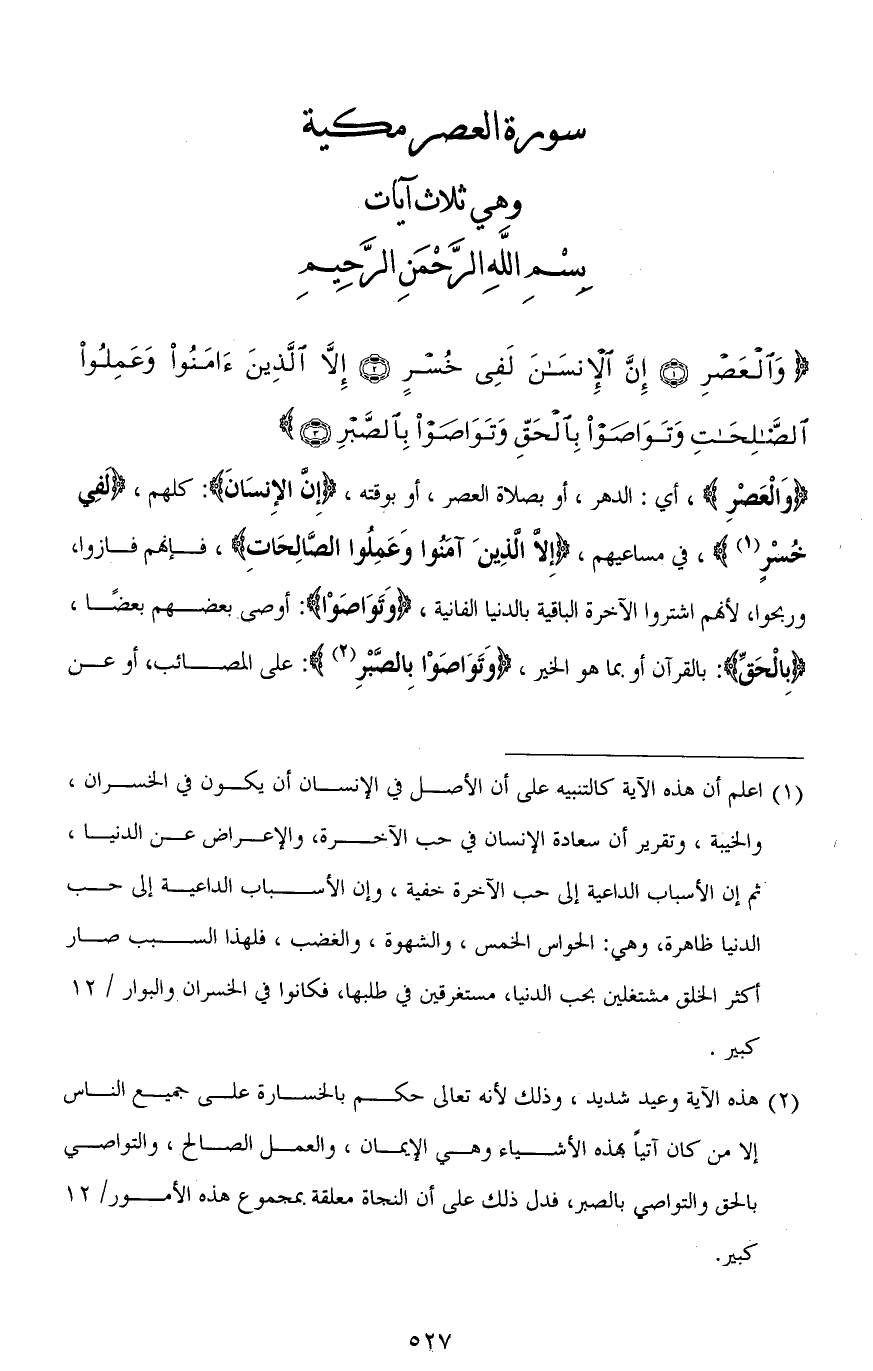 سورة العصر مكية
وهي ثلاث آيات
بِسْمِ اللَّهِ الرَّحْمَنِ الرَّحِيمِ
﴿ وَٱلْعَصْرِ ۝١ إِنَّ ٱلْإِنسَـٰنَ لَفِى خُسْرٍ ۝٢ إِلَّا ٱلَّذِينَ ءَامَنُوا۟ وَعَمِلُوا۟
ٱلصَّـٰلِحَـٰتِ وَتَوَاصَوْا۟ بِٱلْحَقِّ وَتَوَاصَوْا۟ بِٱلصَّبْرِ ۝٣ ﴾
﴿وَالْعَصْرِ﴾ ، أي : الدهر ، أو بصلاة العصر ، أو بوقته ، ﴿إِنَّ الإِنسَانَ﴾: كلهم ، ﴿لَفِي
خُسْرٍ(١)﴾ ، في مساعيهم ، ﴿إِلاَّ الَّذِينَ آمَنُوا وَعَمِلُوا الصَّالِحَاتِ﴾ ، فإنهم فازوا،
وربحوا، لأنهم اشتروا الآخرة الباقية بالدنيا الفانية ، ﴿وَتَوَاصَوْا﴾: أوصى بعضهم بعضًا ،
﴿بِالْحَقِّ﴾: بالقرآن أو بما هو الخير ، ﴿وَتَوَاصَوْا بِالصَّبْرِ(٢)﴾: على المصائب، أو عن
(١) اعلم أن هذه الآية كالتنبيه على أن الأصل في الإنسان أن يكون في الخسران ،
والخيبة ، وتقرير أن سعادة الإنسان في حب الآخرة، والإعراض عن الدنيا ،
ثم إن الأسباب الداعية إلى حب الآخرة خفية ، وإن الأسباب الداعية إلى حب
الدنيا ظاهرة، وهي: الحواس الخمس ، والشهوة ، والغضب ، فلهذا السبب صار
أكثر الخلق مشتغلين بحب الدنيا، مستغرقين في طلبها، فكانوا في الخسران والبوار / ١٢
كبير .
(٢) هذه الآية وعيد شديد ، وذلك لأنه تعالى حكم بالخسارة على جميع الناس
إلا من كان آتياً بهذه الأشياء وهي الإيمان ، والعمل الصالح ، والتواصي
بالحق والتواصي بالصبر، فدل ذلك على أن النجاة معلقة بمجموع هذه الأمور/ ١٢
كبير.
٥٢٧